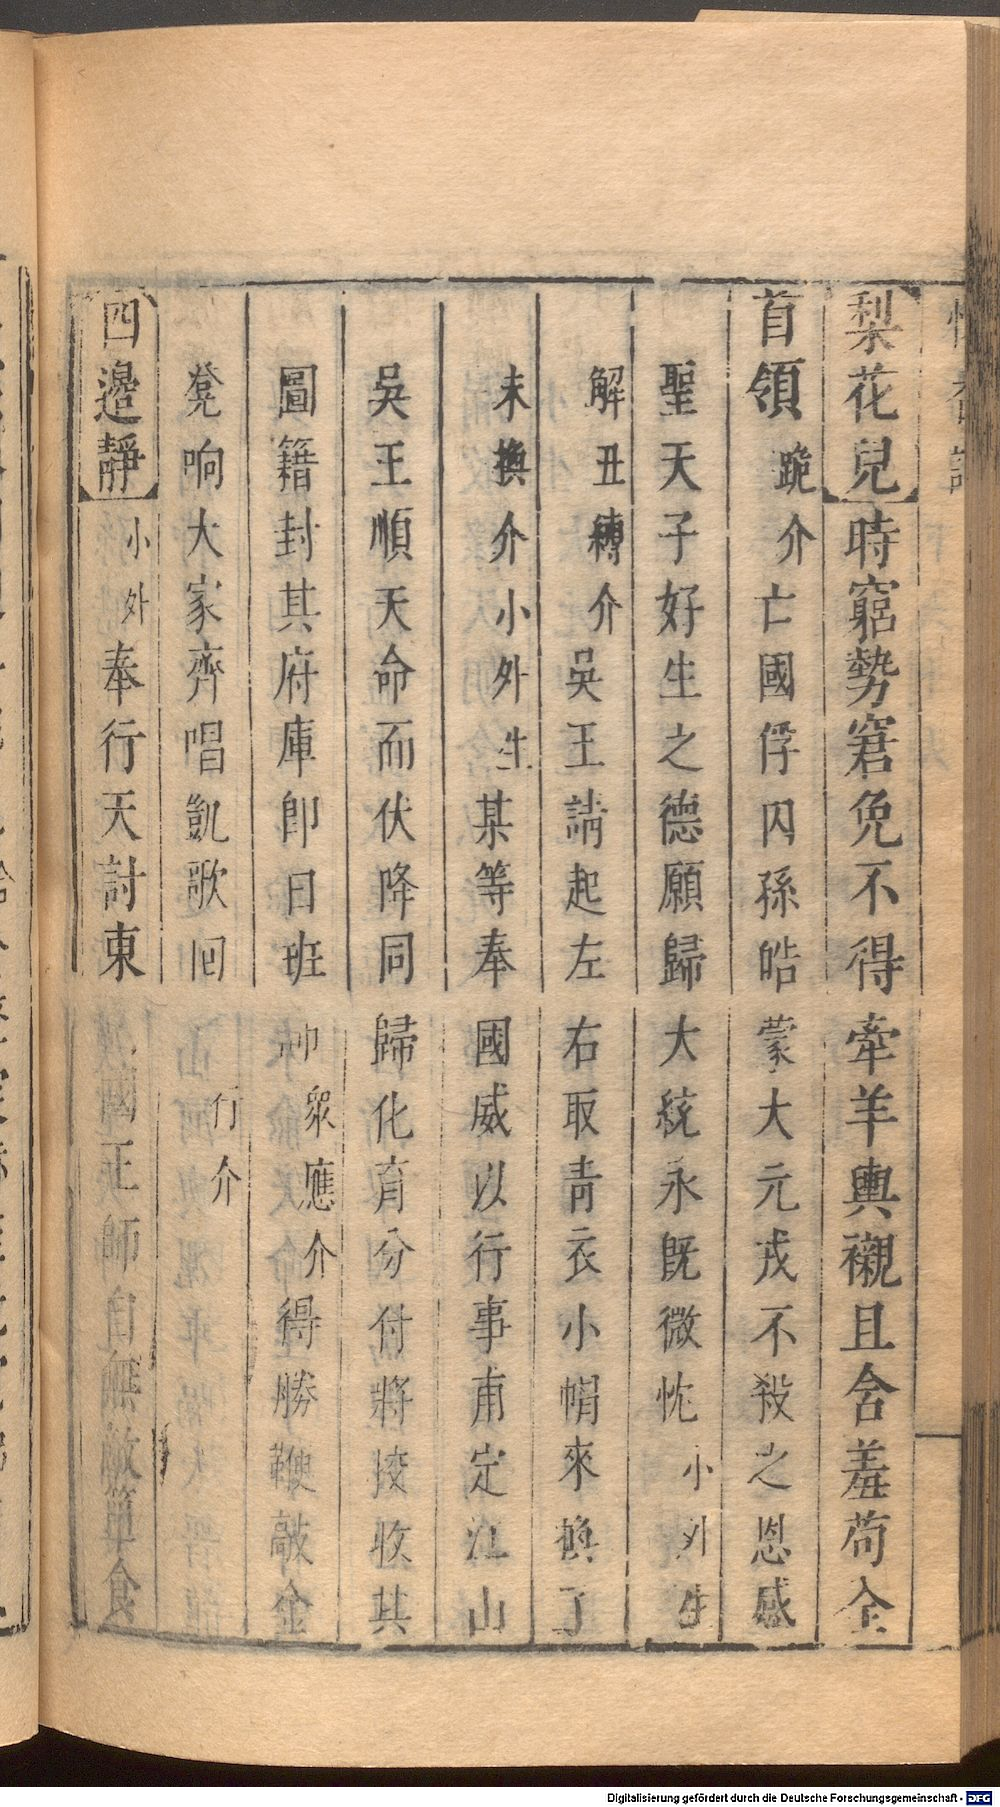 梨花兒時窮勢窘免不得牽羊輿櫬且含羞苟全
首領跪介亡國俘囚孫皓蒙大元戎不殺之恩感
聖天子好生之德願歸大統永旣微忱小外生
解丑縛介吳王請起左右取青衣小帽來換了
末換介小外生某等奉國威以行事甫定江山
吳王順天命而伏降同歸化育分付將挍收其
圖籍封其府庫卽日班師衆應介得勝鞭敲金
凳响大家齊唱凱歌囘行介
四邉靜小外奉行天討東國王師自無敵簞食
Digitalisierung gefördert durch die Deutsche Forschungsgemeinschaft - DFG